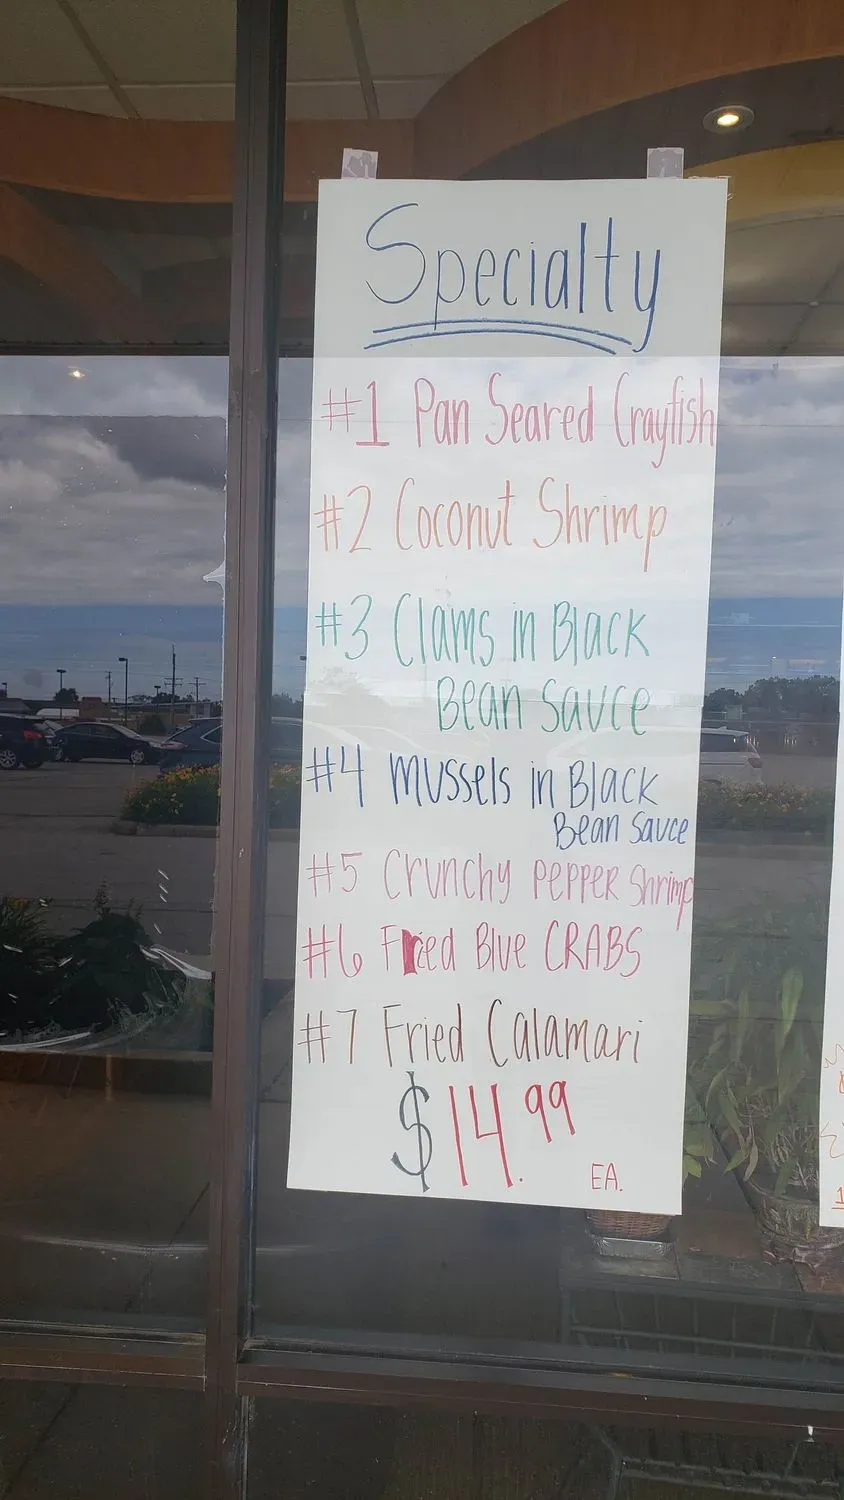 Specialty
#1 Pan Seared Crayfish
#2 Coconut Shrimp
#3 Clams in Black
Bean Sauce
#4 Mussels in Black
Bean Sauce
#5 Crunchy PEPPER Shrimp
#6 Fried Blue CRABS
#7 Fried Calamari
$14.99
EA.